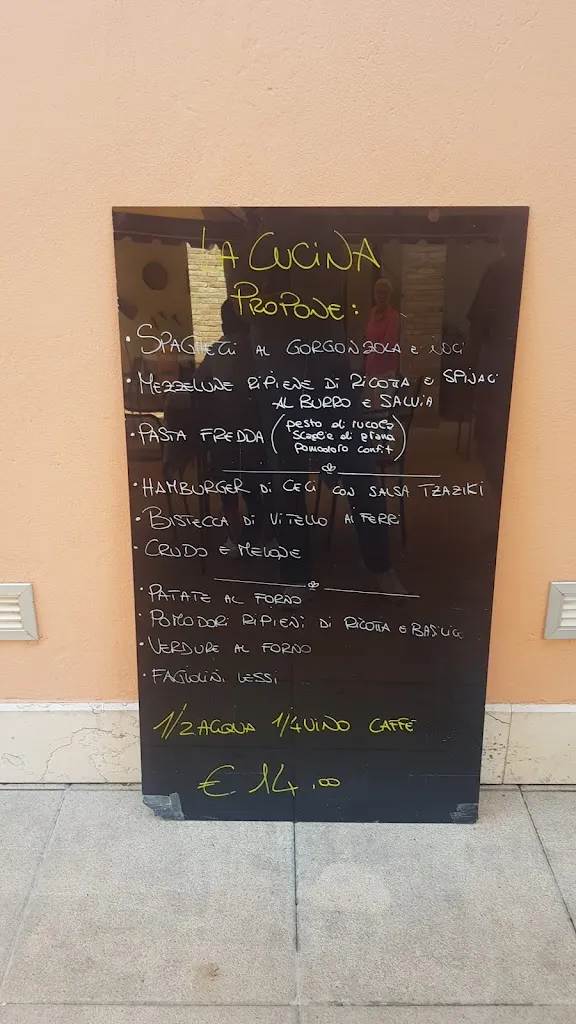 LA CUCINA
PROPONE:
• SPAGHETTI AL GORGONZOLA E NOCI
• MEZZELUNE RIPIENE DI RICOTTA E SPINACI
AL BURRO E SALVIA
• PASTA FREDDA (pesto di rucola
scaglie di grana
pomodoro confit)
• HAMBURGER DI CECI CON SALSA TZAZIKI
• BISTECCA DI VITELLO AI FERRI
• CRUDO E MELONE
• PATATE AL FORNO
• POMODORI RIPIENI DI RICOTTA E BASILICO
• VERDURE AL FORNO
• FAGIOLINI LESSI
1/2 ACQUA 1/4 VINO CAFFÈ
€ 14.00